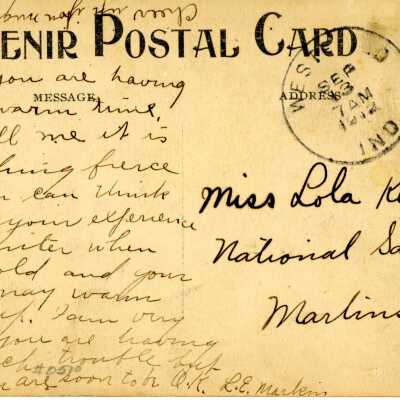 ENIR POSTAL CARD
MESSAGE
ADDRESS
you are having
warm time,
ll me it is
hing fierce
u can think
your experience
nter when
old and your
may warm
I am very
you are having
ch trouble but
are soon to be O.K. L.E. Markins
#0570
WEST
FEB
7 AM
1912
IND
Miss Lola K
National Sa
Marlins